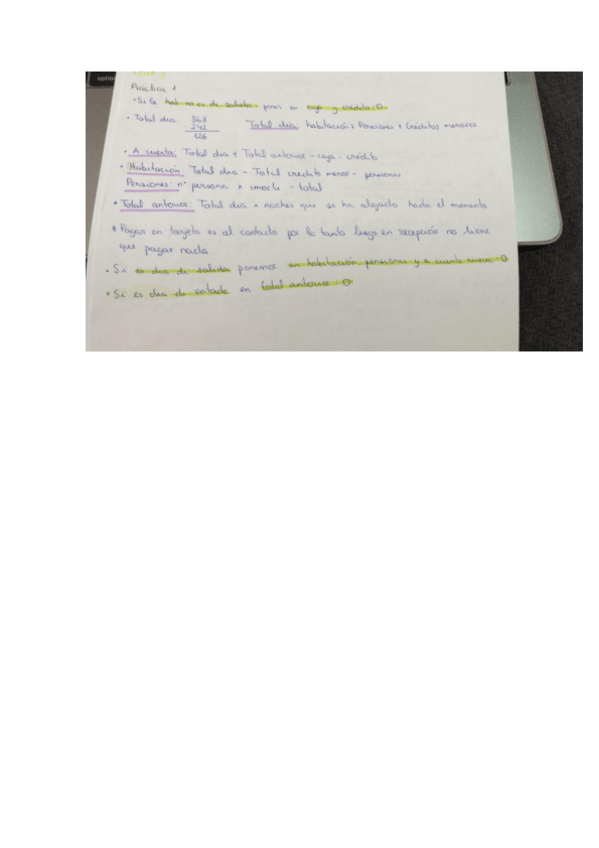 option
Práctica 1
• Si la hab no es de salida poner en caja y crédito: 0
• Total día: 368
- 242
126
Total día: habitación + Pensiones + Créditos menores
• A cuenta: Total dia + Total anterior - caja - crédito
• Habitación: Total dia - Total credito menor - pensiones
Pensiones: nº persona × - total
• Total anterior: Total dia × noches que se ha alojado hasta el momento
* Pagar en tarjeta es al contado por lo tanto luego en recepción no tiene
que pagar nada
• Si es dia de salida ponemos en habitación, pensiones y a cuenta nueva 0
• Si es dia de entrada en total anterior 0